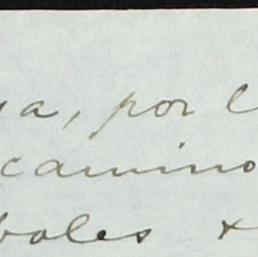 a, por l
camino
boles